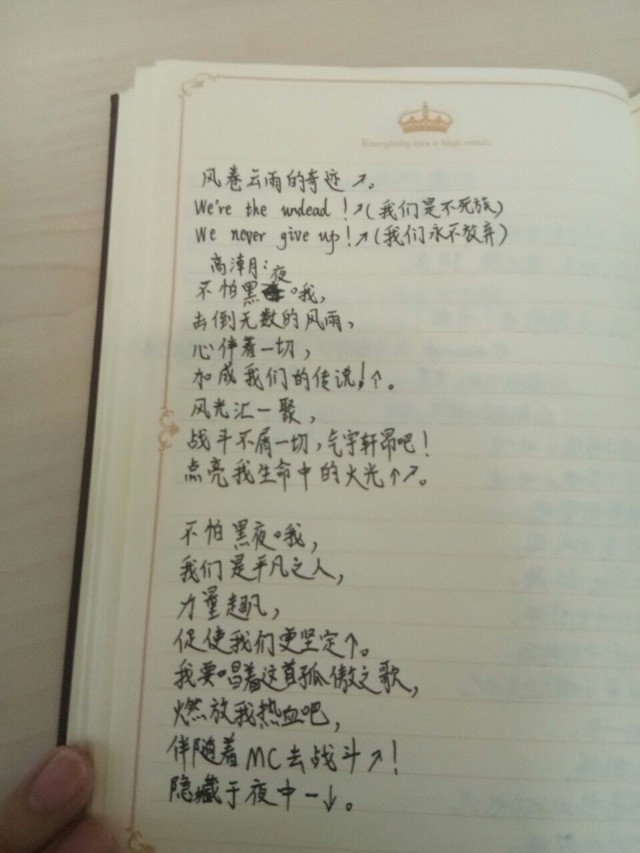 Everybody has a high mind.
风卷云雨的奇迹↗。
We're the undead!↗(我们是不死族)
We never give up!↗(我们永不放弃)
高潮:
不怕黑夜。哦,
击倒无数的风雨,
心伴着一切,
加成我们的传说!↑。
风光汇一聚,
战斗不屑一切,气宇轩昂吧!
点亮我生命中的火光↑↗。
不怕黑夜。哦,
我们是平凡之人,
力量超凡,
促使我们更坚定↑。
我要唱着这首孤傲之歌,
燃放我热血吧,
伴随着MC去战斗↗!
隐藏于夜中一↓。